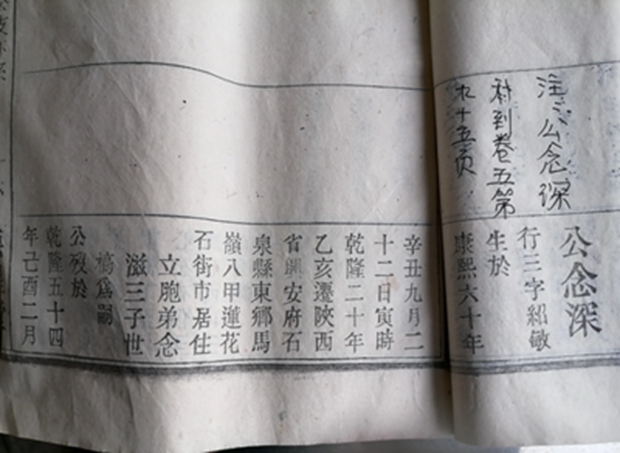 注:公念深
补到卷五第
九十五页
公念深
行三字紹敏
生於
康熙六十年
辛丑九月二
十二日寅時
乾隆二十年
乙亥遷陝西
省興安府石
泉縣東鄉馬
嶺八甲蓮花
石街市居住
立胞弟念
滋三子世
稿爲嗣
公歿於
乾隆五十四
年己酉二月